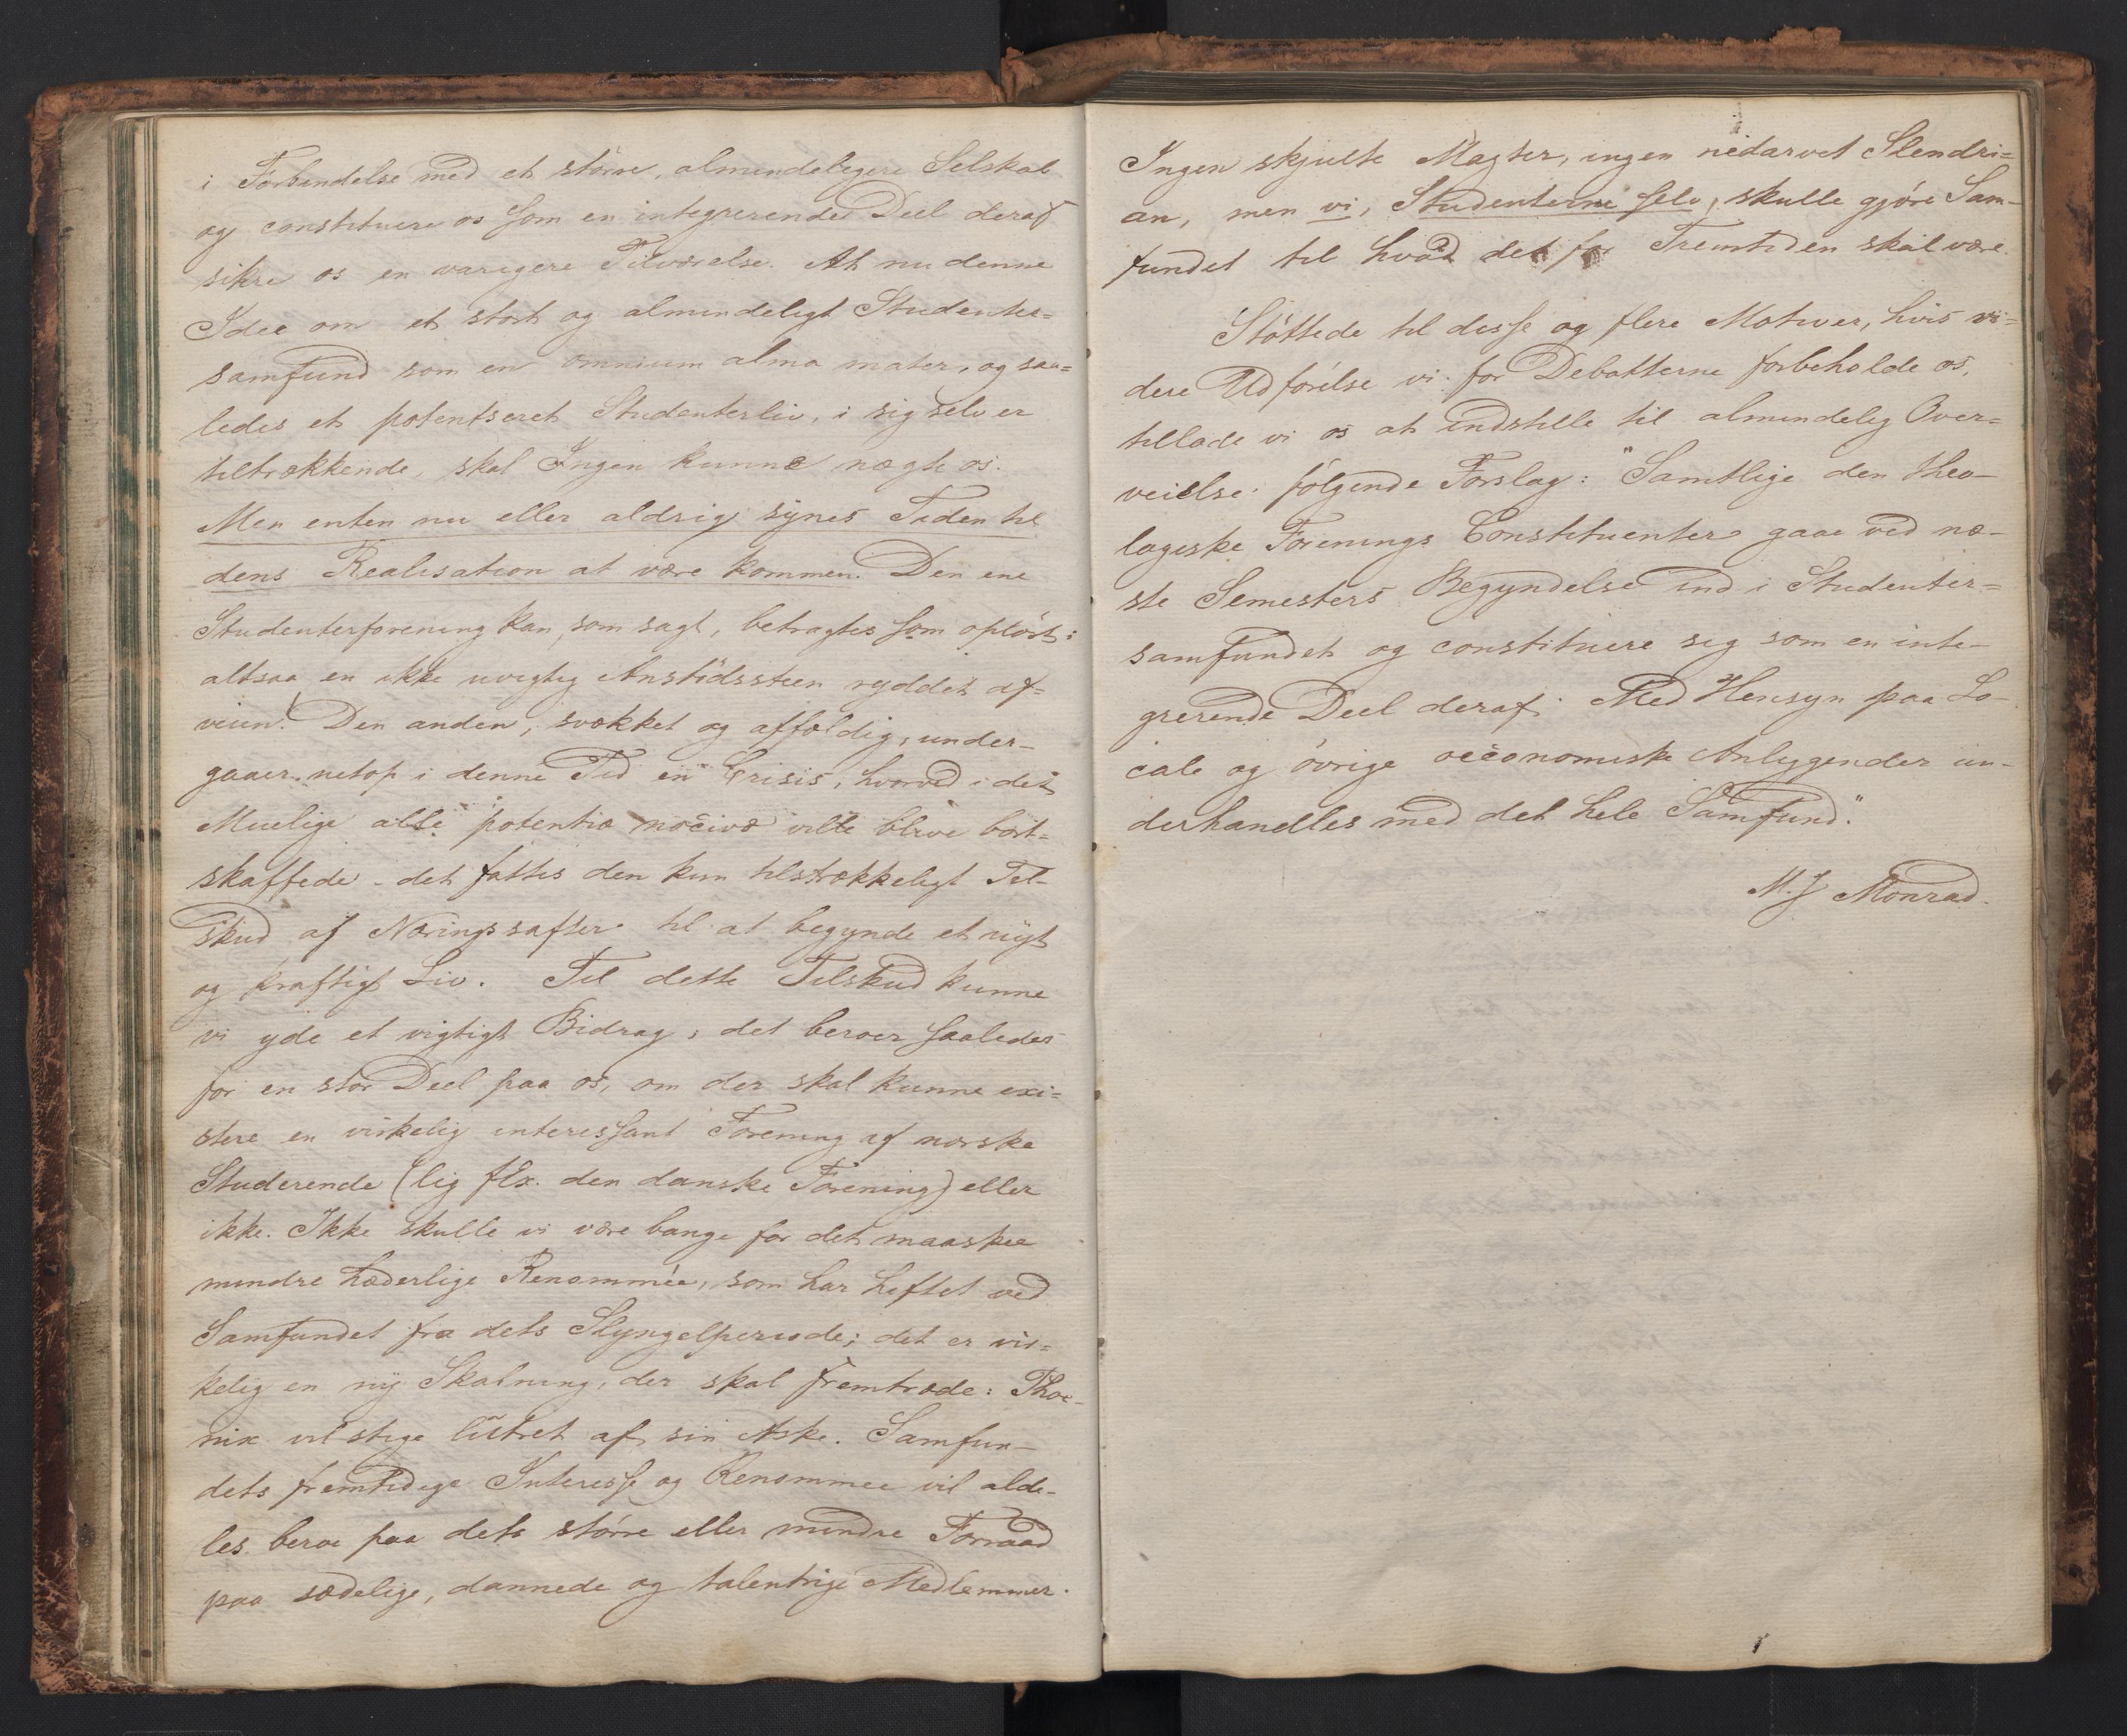 i Forbindelse med et større, almindeligere Selskab
og constituere os som en integrerende Deel deraf
sikre os en varigere Tilværelse. At nu denne
Idee om et stort og almindeligt Studenter=
samfund som en omnium alma mater, og saa=
ledes et potentseret Studenterliv, i sig selv er
tiltrækkende, skal Ingen kunne nægte os.
Men enten nu eller aldrig synes Tiden til
dens Realisation at være kommen. Den ene
Studenterforening kan, som sagt, betragtes som opløst:
altsaa en ikke uvigtig Anstødssteen ryddet af=
veien. Den anden, svækket og affældig, under-
gaaer netop i denne Tid en Crisis, hvorved i det
Muelige alle potentiæ nocivæ ville blive bort=
skaffede - det fattes den kun tilstrækkeligt Til-
skud af Næringssafter til at begynde et nyt
og kraftigt Liv. Til dette Tilskud kunne
vi yde et vigtigt Bidrag; det beroer saaledes
for en stor Deel paa os, om der skal kunne exi=
stere en virkelig interessant Forening af norske
Studerende (lig f Ex. den danske Forening) eller
ikke. Ikke skulle vi være bange for det maaskee
mindre hæderlige Renommée, som har heftet ved
Samfundet fra dets Slyngelperiode; det er vir=
kelig en ny Skabning, der skal fremtræde: Phoe-
nix vil stige luttret af sin Aske. Samfun-
dets fremtidige Interesse og Renommee vil alde-
les beroe paa dets større eller mindre Forraad
paa sædelige, dannede og talentrige Medlemmer.
Ingen skjulte Magter, ingen nedarvet Slendri=
an, men vi, Studenterne selv, skulle gjøre Sam-
fundet til hvad det for Fremtiden skal være.
Støttede til disse og flere Motiver, hvis vi=
dere Udførelse vi for Debatterne forbeholde os,
tillade vi os at indstille til almindelig Over=
veielse følgende Forslag: "Samtlige den theo-
logiske Forenings Constituenter gaae ved næ-
ste Semesters Begyndelse ind i Studenter=
samfundet og constituere sig som en inte-
grerende Deel deraf. Med Hensyn paa Lo-
cale og øvrige oeconomiske Anliggender un-
derhandles med det hele Samfund."
M. J Monrad.